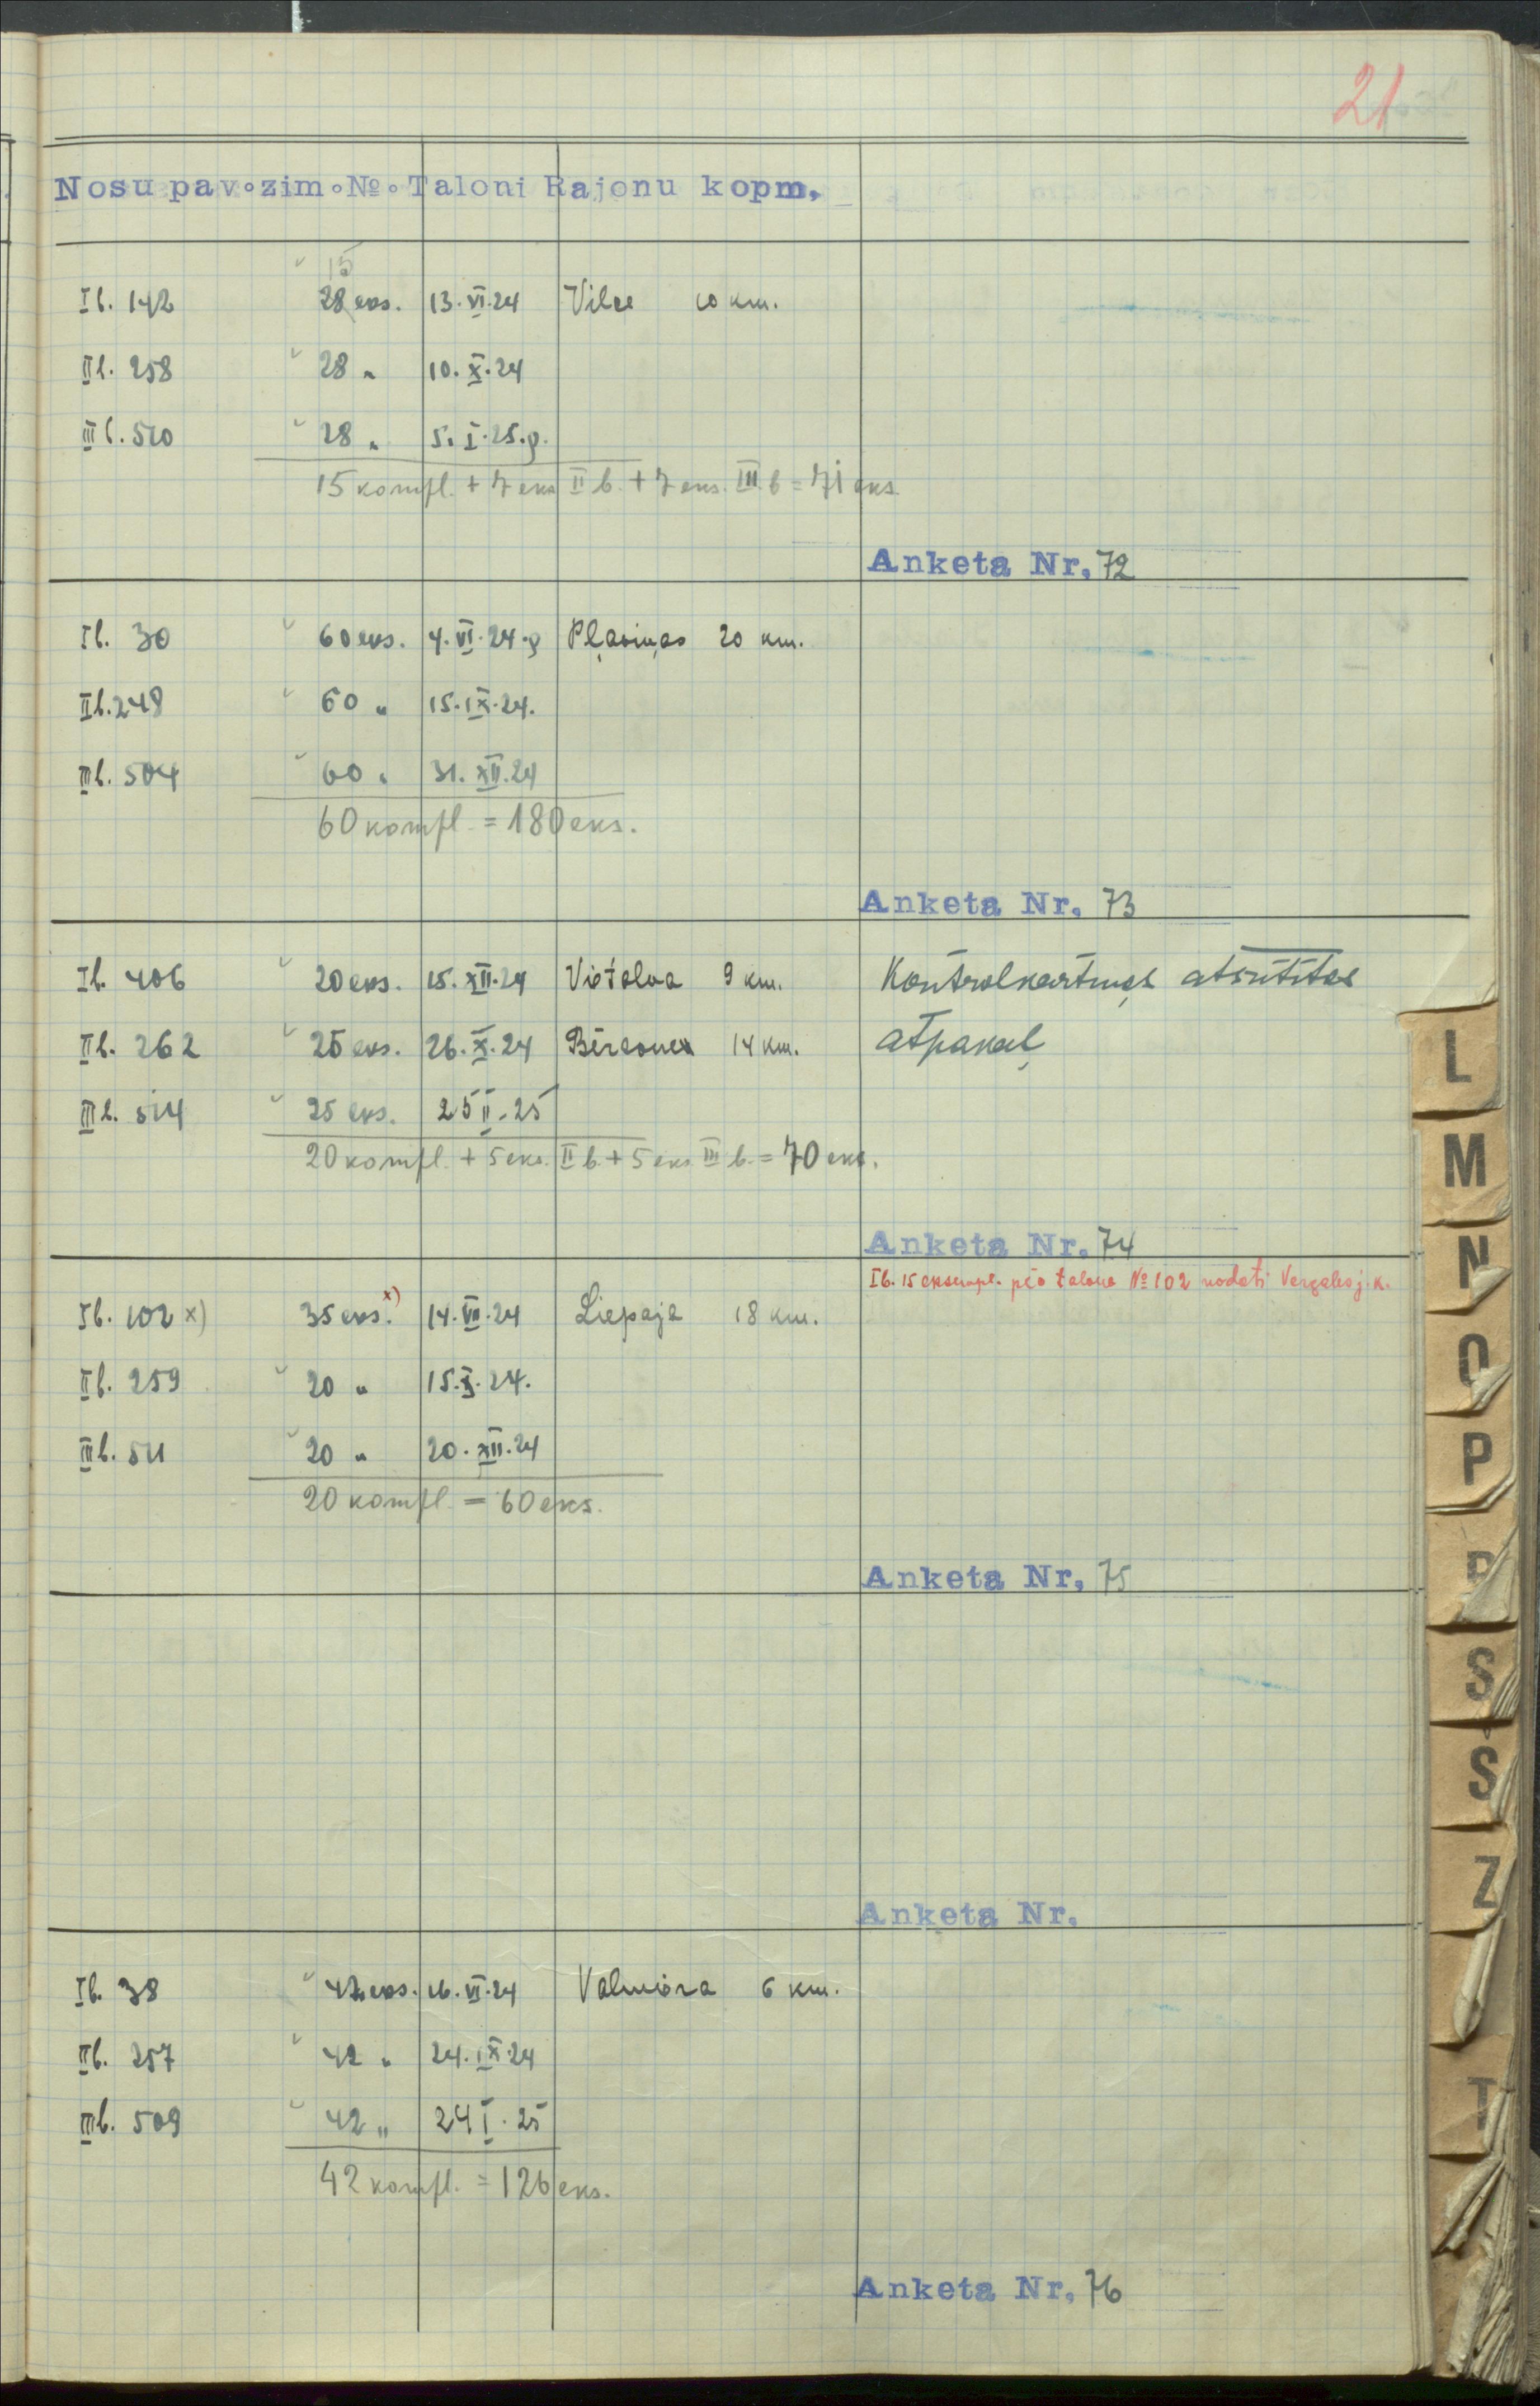 21
Nosu pav. zim. № Taloni Rajonu kopm,
15
I b. 142 28 eks. 13.VI.24 Vilce 10 km.
II b. 258 28 " 10.X.24
III b. 510 28 " 5.I.25.g.
15 kompl. + 7 eks II b. + 7 eks. III b = 71 eks.
Anketa Nr. 72
I b. 30 60 eks. 4.VI.24.g Pļaviņas 20 km.
II b. 248 60 " 15.IX.24.
III b. 504 60 " 31.XII.24
60 kompl. = 180 eks.
Anketa Nr. 73
I b. 406 20 eks. 15.XII.24 Vietalva 9 km. Kontrolkartiņas atsūtītas
II b. 262 25 eks. 26.X.24 Bērzone 14 km. atpakaļ
III b. 514 25 eks. 25 II-25
20 kompl. + 5 eks. II b. + 5 eks III b. = 70 eks.
Anketa Nr. 74
I b. 15 eksempl. pēc talona № 102 nodoti Vergales j. k.
I b. 102 x) 35 eks. x) 14.VII.24 Liepaja 18 km.
II b. 259 20 " 15.X.24.
III b. 511 20 " 20.XII.24
20 kompl. = 60 eks.
Anketa Nr. 75
Anketa Nr.
I b. 38 42 eks. 16.VI.24 Valmiera 6 km.
II b. 257 42 " 24.IX.24
III b. 509 42 " 24 I.25
42 kompl. = 126 eks.
Anketa Nr. 76
L
M
N
O
P
R
S
Š
Z
T